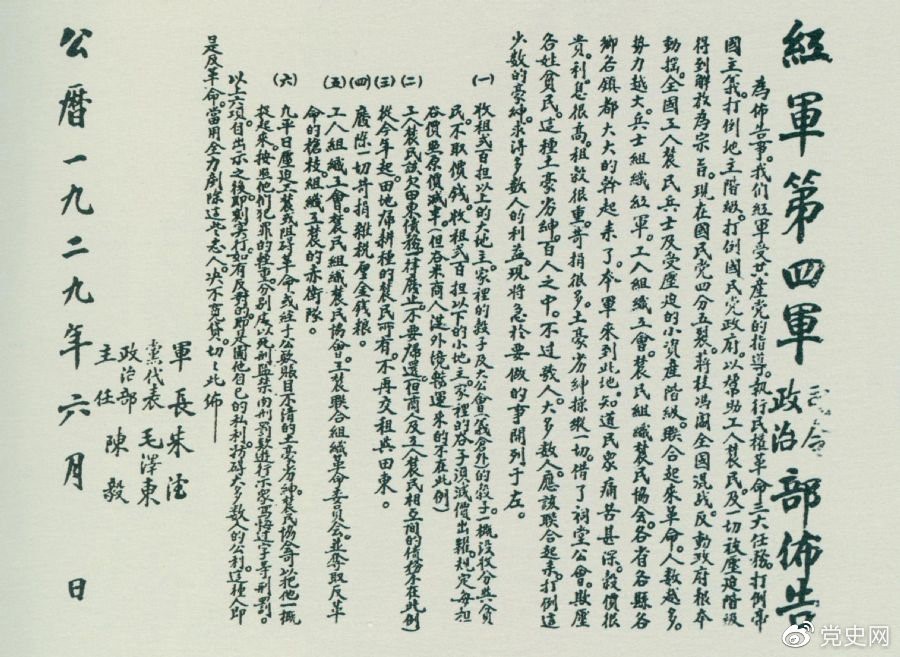 紅軍第四軍司令政治部佈告
為佈告事。我們紅軍受共產黨的指導。執行民權革命三大任務。打倒帝
國主義。打倒地主階級。打倒國民黨政府。以幫助工人農民。及一切被壓迫階級
得到解放為宗旨。現在國民黨四分五裂。蔣桂馮閻全國混战。反動政府根本
動搖。全國工人農民兵士及受壓迫的小資產階級。聯合起來革命。人數越多。
勢力越大。兵士組織紅軍。工人組織工會。農民組織農民協会。各省各縣各
鄉各镇都大大的幹起來了。本軍來到此地。知道民眾痛苦甚深。穀價很
貴。利息很高。租穀很重。苛捐很多。土豪劣紳操縱一切。借了祠堂公會。欺壓
各姓貧民。這種土豪劣紳。百人之中。不过数人。大多数人。應該联合起來。打倒這
少数的豪紳。求得多数人的利益。現將急於要做的事開列于左。
(一) 收租弍百担以上的大地主。家裡的穀子及大公會(義倉外)的穀子一概没收分與貧
民。不取價钱。收租弍百担以下的小地主。家裡的谷子須減價出糶。規定每担
谷價照原價減半。(但谷米商人從外境辦運來的不在此例)
(二) 工人農民該欠田東債務。一律廢止。不要歸還。(但商人及工人農民相互間的債務不在此例)
(三) 從今年起。田地歸耕種的農民所有。不再交租與田東。
(四) 廢除一切苛捐雜稅厘金錢粮。
(五) 工人組織工會。農民組織農民協會。工農联合組織革命委員会。並奪取反革
命的槍枝組織工農的赤衛隊。
(六) 凡平日壓迫工農或阻碍革命。或经手公款賬目不清的土豪劣紳。農民協會可以把他一概
捉起來。按照他们犯罪的輕重。分别处以死刑監禁肉刑罰款遊行示眾寫悔过字等刑罰。
以上六項自出示之後。即刻实行。如有反對的。即是圖他自己的私利。妨碍大多数人的公利。這種人即
是反革命。當用全力剷除這些恶人。决不寬貸。切切此佈
軍長 朱德
黨代表 毛澤東
政治部主任 陳毅
公曆一九二九年六月 日
党史网